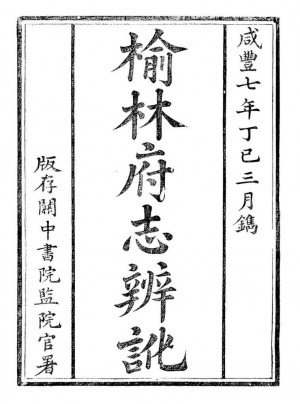 咸豐七年丁巳三月鐫
榆林府志辨訛
版存關中書院監院官署